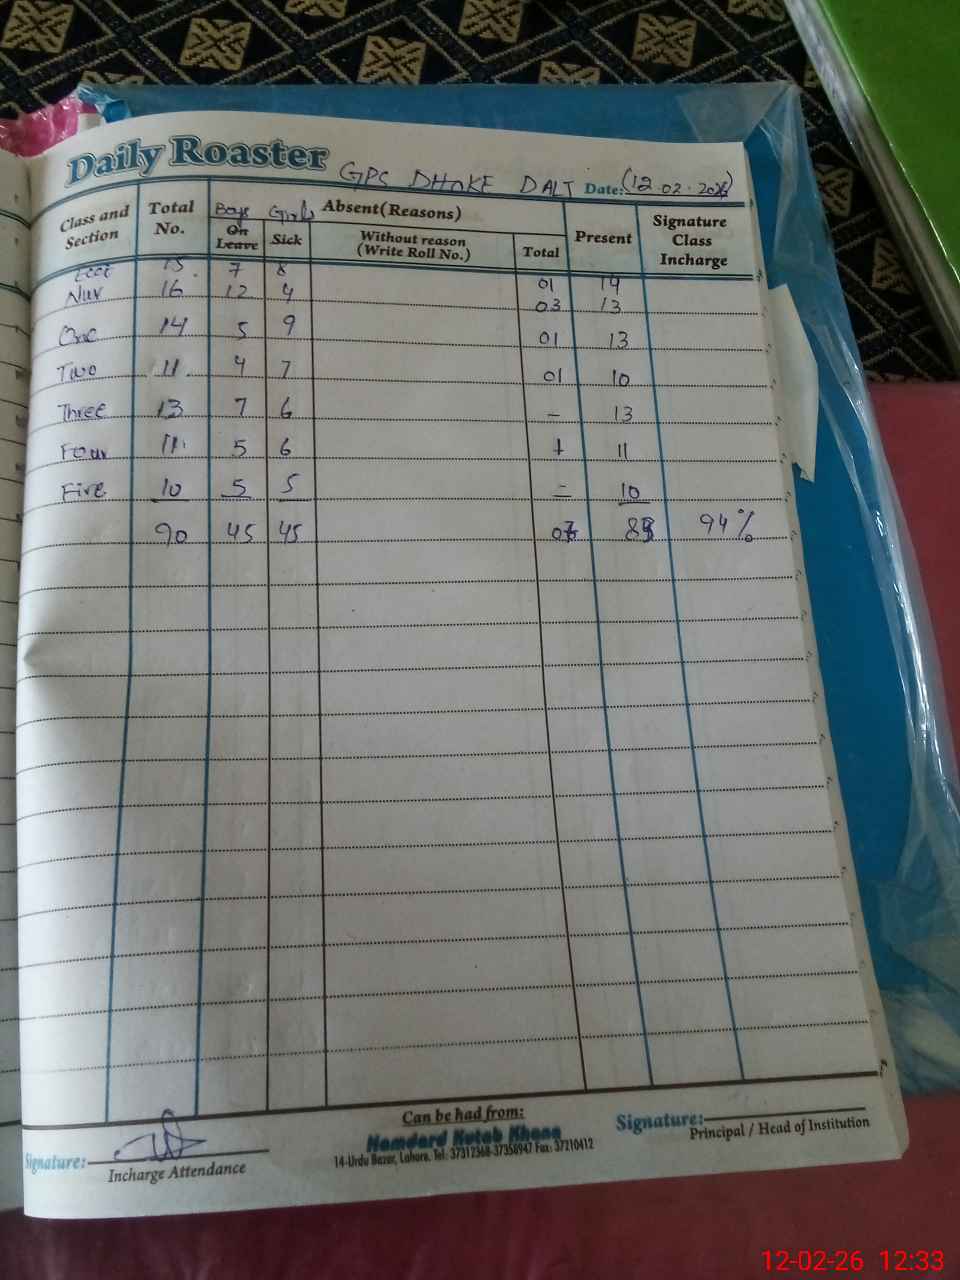 Daily Roaster GPS DHOKE DALT Date: (12.02.2026)
Class and Section Total No. Boys Girls Absent (Reasons) Present Signature Class Incharge
On Leave Sick Without reason (Write Roll No.) Total
Ecce 15 7 8 01 14
Nur 16 12 4 03 13
One 14 5 9 01 13
Two 11 4 7 01 10
Three 13 7 6 – 13
Four 11 5 6 11
Five 10 5 5 – 10
90 45 45 94%
Signature: Incharge Attendance
Can be had from:
Hamdard Kutab Khana
14-Urdu Bazar, Lahore. Tel: 37312368-37358947 Fax: 37210412
Signature: Principal / Head of Institution
12-02-26 12:33